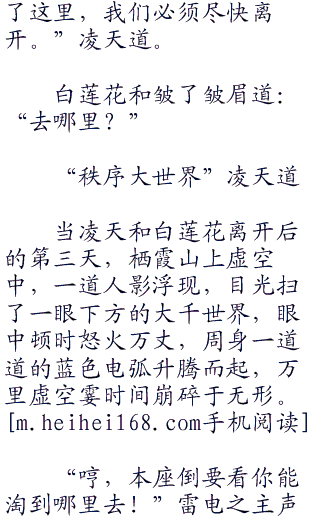 了这里，我们必须尽快离
开。”凌天道。
白莲花和皱了皱眉道：
“去哪里？”
“秩序大世界”凌天道
当凌天和白莲花离开后
的第三天，栖霞山上虚空
中，一道人影浮现，目光扫
了一眼下方的大千世界，眼
中顿时怒火万丈，周身一道
道的蓝色电弧升腾而起，万
里虚空霎时间崩碎于无形。
[m.heihei168.com手机阅读]
“哼，本座倒要看你能
淘到哪里去！”雷电之主声